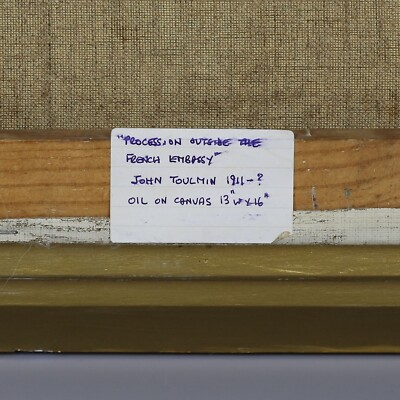 "PROCESSION OUTSIDE THE
FRENCH EMBASSY"
JOHN TOULMIN 1911-?
OIL ON CANVAS 13" x 16"